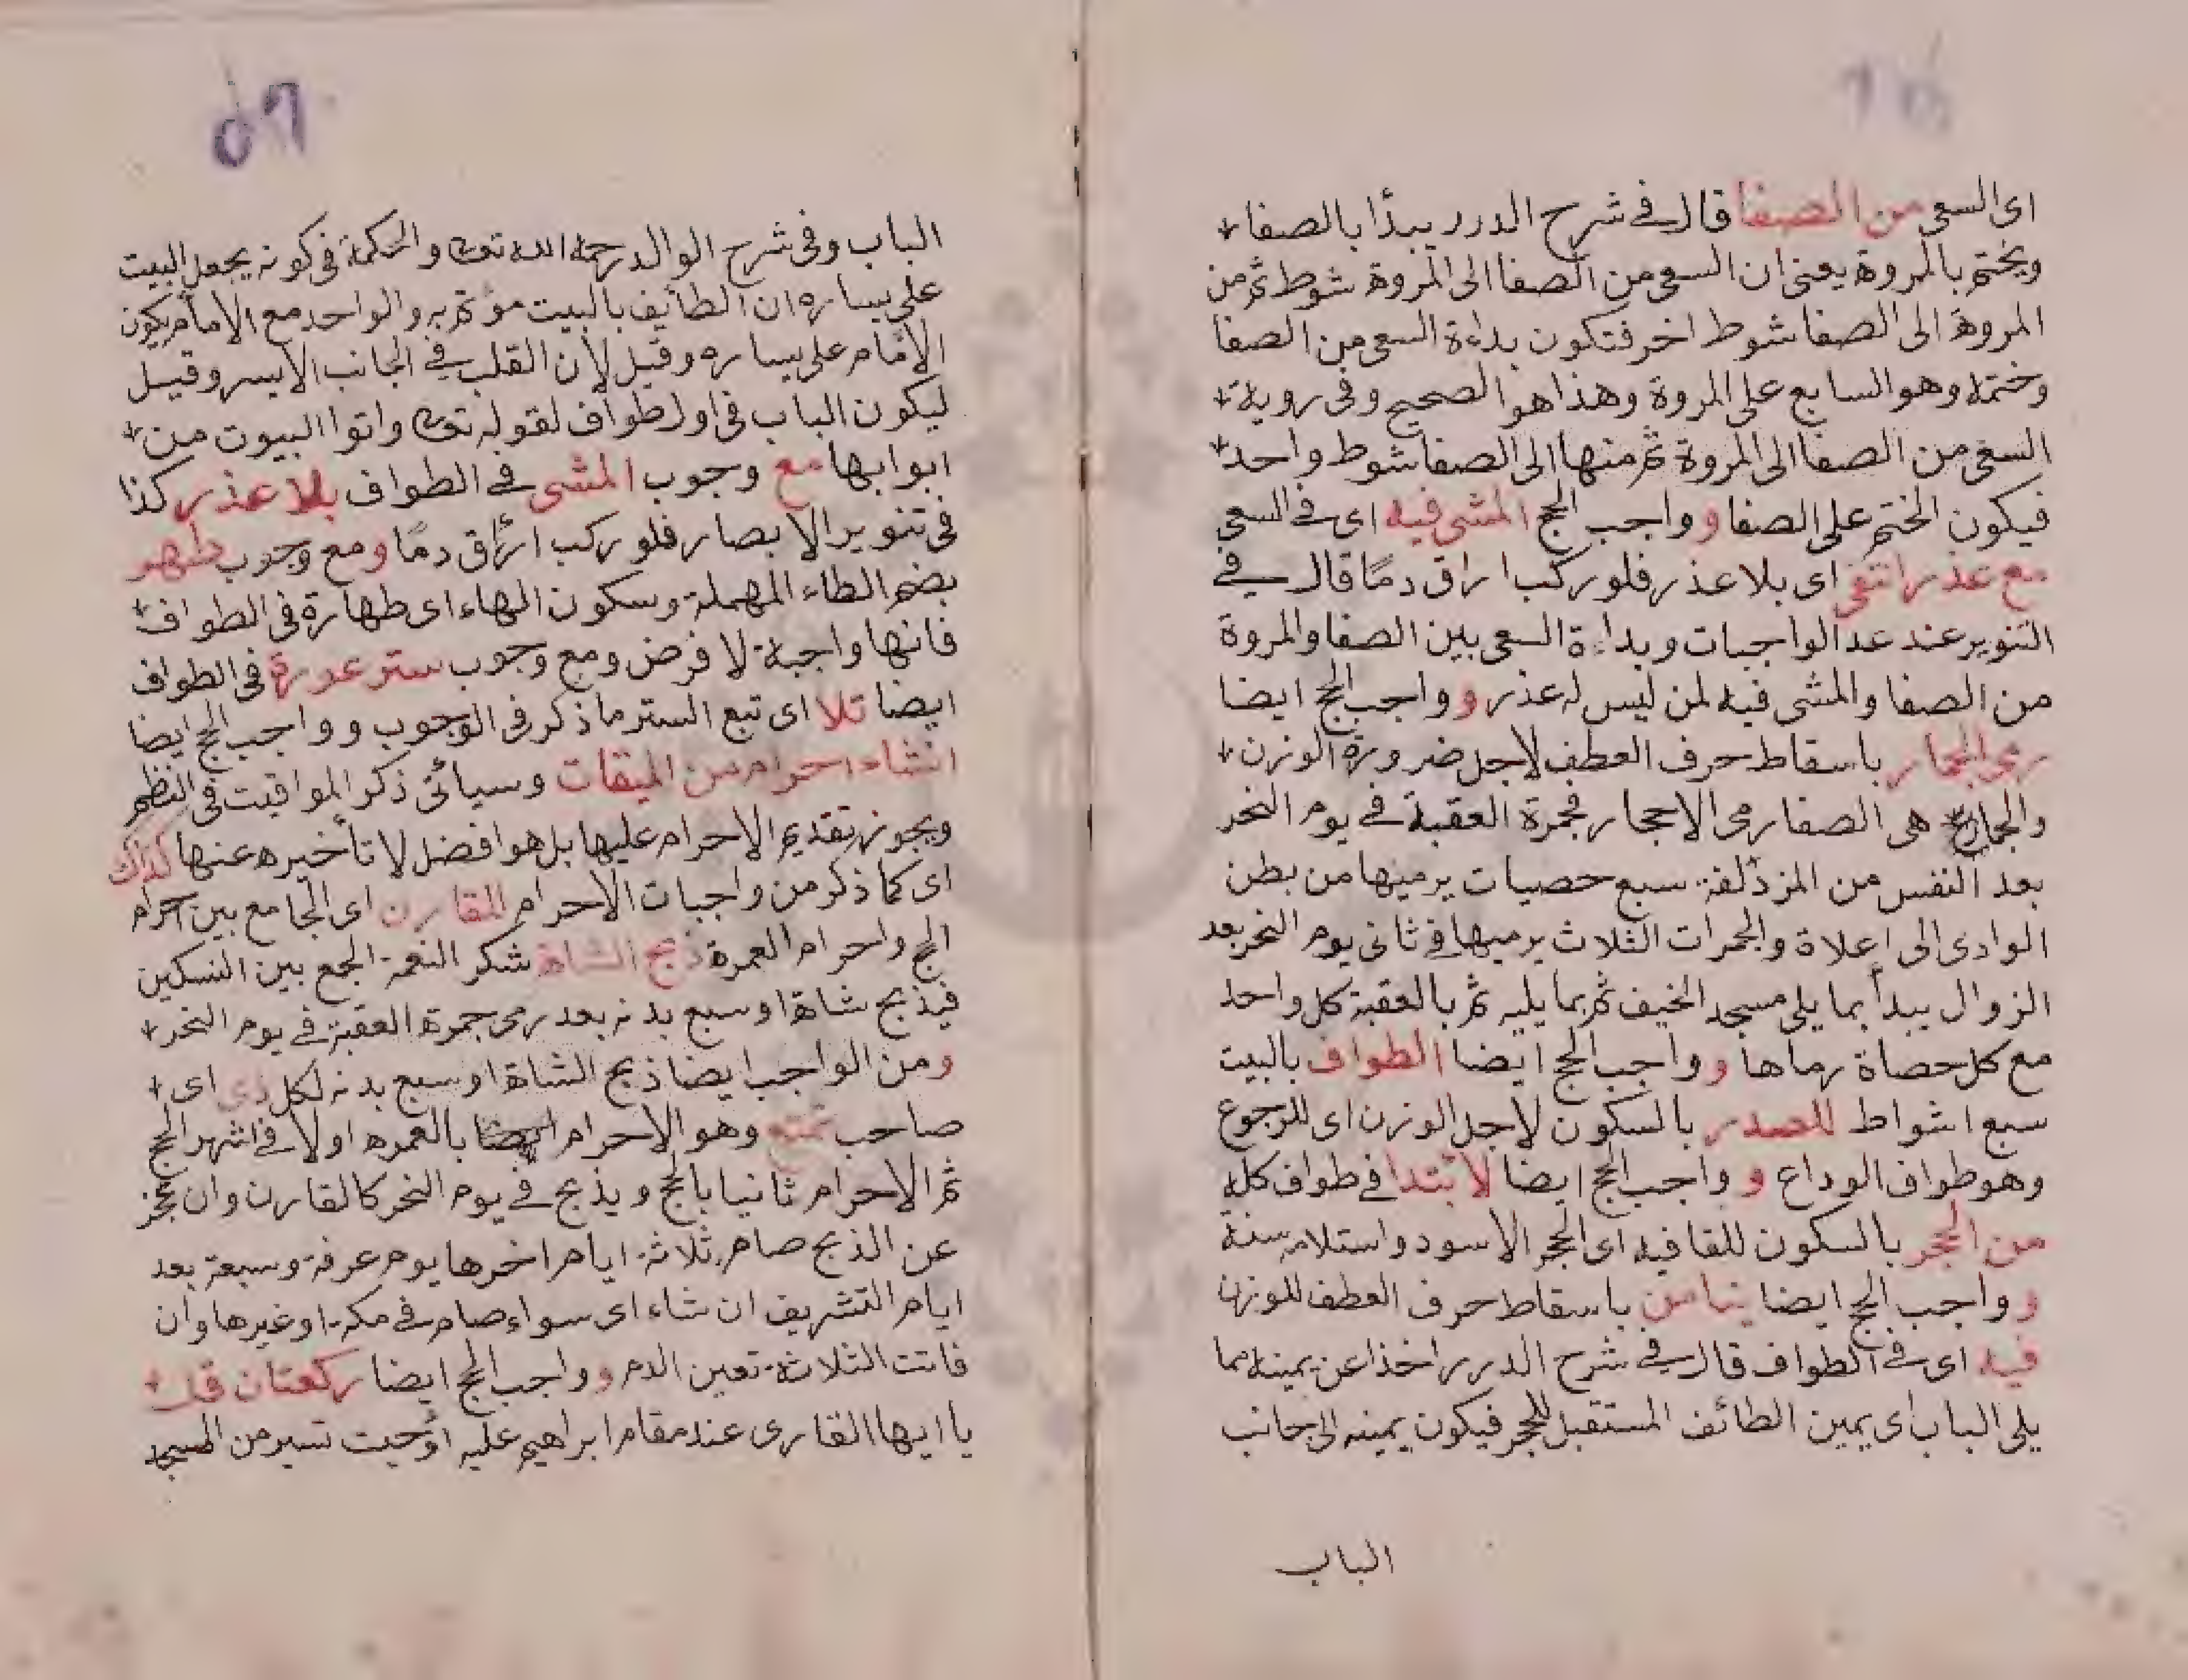 اى السعى من الصفا قال فى شرح الدرر يبدأ بالصفا
ويختم بالمروة يعنى ان السعى من الصفا الى المروة شوط ثم من
المروة الى الصفا شوط اخر فتكون بداءة السعى من الصفا
وختمه وهو السابع على المروة وهذا هو الصحيح وفى روية
السعى من الصفا الى المروة ثم منها الى الصفا شوط واحد
فيكون الختم على الصفا و وواجب الحج المشى فيه اى فى السعى
مع عذر انتفى اى بلا عذر فلو ركب اراق دمًا قال فى
التنوير عند عد الواجبات وبداءة السعى بين الصفا والمروة
من الصفا والمشى فيه لمن ليس له عذر و وواجب الحج ايضا
رمى الجمار باسقاط حرف العطف لاجل ضرورة الوزن
والجمار هى الصفار مى الاحجار فجمرة العقبة فى يوم النحر
بعد النفس من المزدلفة سبع حصيات يرميها من بطن
الوادى الى اعلاة والجمرات الثلاث يرميها فى ثانى يوم النحر بعد
الزوال يبدأ بما يلى مسجد الخيف ثم بما يليه ثم بالعقبة كل واحد
مع كل حصاة رماها و وواجب الحج ايضا الطواف بالبيت
سبع اشواط للصدر بالسكون لاجل الوزن اى للرجوع
وهو طواف الوداع و وواجب الحج ايضا لابتدا فى طواف كله
من الحجر بالسكون للقافيه اى الحجر الاسود واستلامه سنة
و وواجب الحج ايضا تيامن باسقاط حرف العطف للوزن
فيه اى فى الطواف قال فى شرح الدرر اخذا عن يمينه مما
يلى الباب اى يمين الطائف المستقبل للحجر فيكون يمينه الى جانب
الباب
٥٦
الباب وفى شرح الوالد رحمه الله تعالى والحكمة فى كونه يجعل البيت
على يساره ان الطايف بالبيت مؤتم به والواحد مع الامام يكون
الامام على يساره وقيل لان القلب فى الجانب الايسر وقيل
ليكون الباب فى اول طواف لقوله تعالى واتوا البيوت من
ابوابها مع وجوب المشى فى الطواف بلا عذر كذا
فى تنوير الابصار فلو ركب اراق دمًا ومع وجوب طهر
بضم الطاء المهملة وسكون الهاء اى طهارة فى الطواف
فانها واجبة لا فرض ومع وجوب ستر عورة فى الطواف
ايضا تلا اى تبع الستر ما ذكر فى الوجوب و وواجب الحج ايضا
انشاء احرام من الميقات وسيأتى ذكر المواقيت فى النظم
ويجوز تقديم الاحرام عليها بل هو افضل لا تأخيره عنها كذاك
اى كما ذكر من واجبات الاحرام للقارن اى الجامع بين احرام
الحج واحرام العمرة ذبح الشاة شكر النعمة الجمع بين النسكين
فيذبح شاة او سبع بدنه بعد رمى جمرة العقبة فى يوم النحر
ومن الواجب ايضا ذبح الشاة او سبع بدنه لكل ذى اى
صاحب تمتع وهو الاحرام بالعمره اولا فى اشهر الحج
ثم الاحرام ثانيا بالحج ويذبح فى يوم النحر كالقارن وان عجز
عن الذبح صام ثلاثة ايام اخرها يوم عرفة وسبعة بعد
ايام التشريف ان شاء اى سواء صام فى مكة او غيرها وان
فاتت الثلاثة تعين الدم و وواجب الحج ايضا ركعتان قل
يا ايها القارى عند مقام ابراهيم عليه او حيت تسير من المسجد